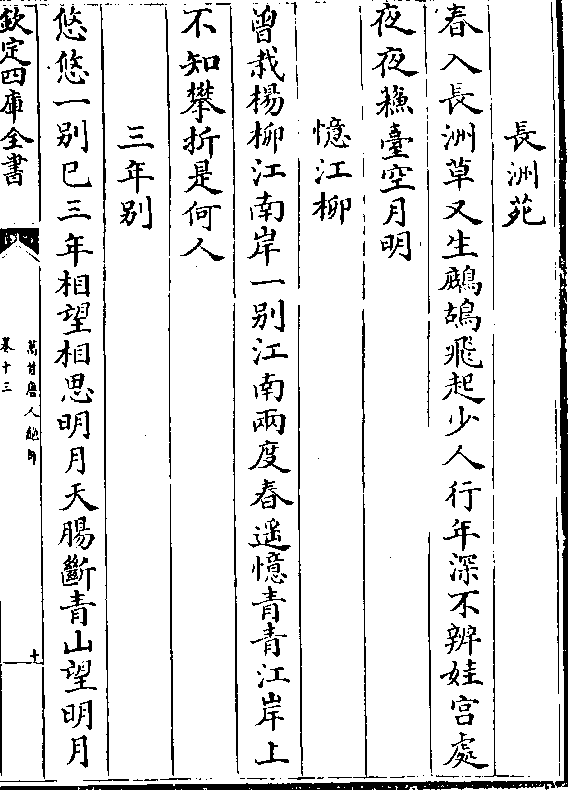 長洲苑
春入長洲草又生鷓鴣飛起少人行年深不辨娃宮處
夜夜蘓臺空月明
憶江柳
曽栽楊柳江南岸一别江南兩度春遥憶青青江岸上
不知攀折是何人
三年别
悠悠一别已三年相望相思明月天腸斷青山望明月
欽定四庫全書
萬首唐人絶句
卷十三
十